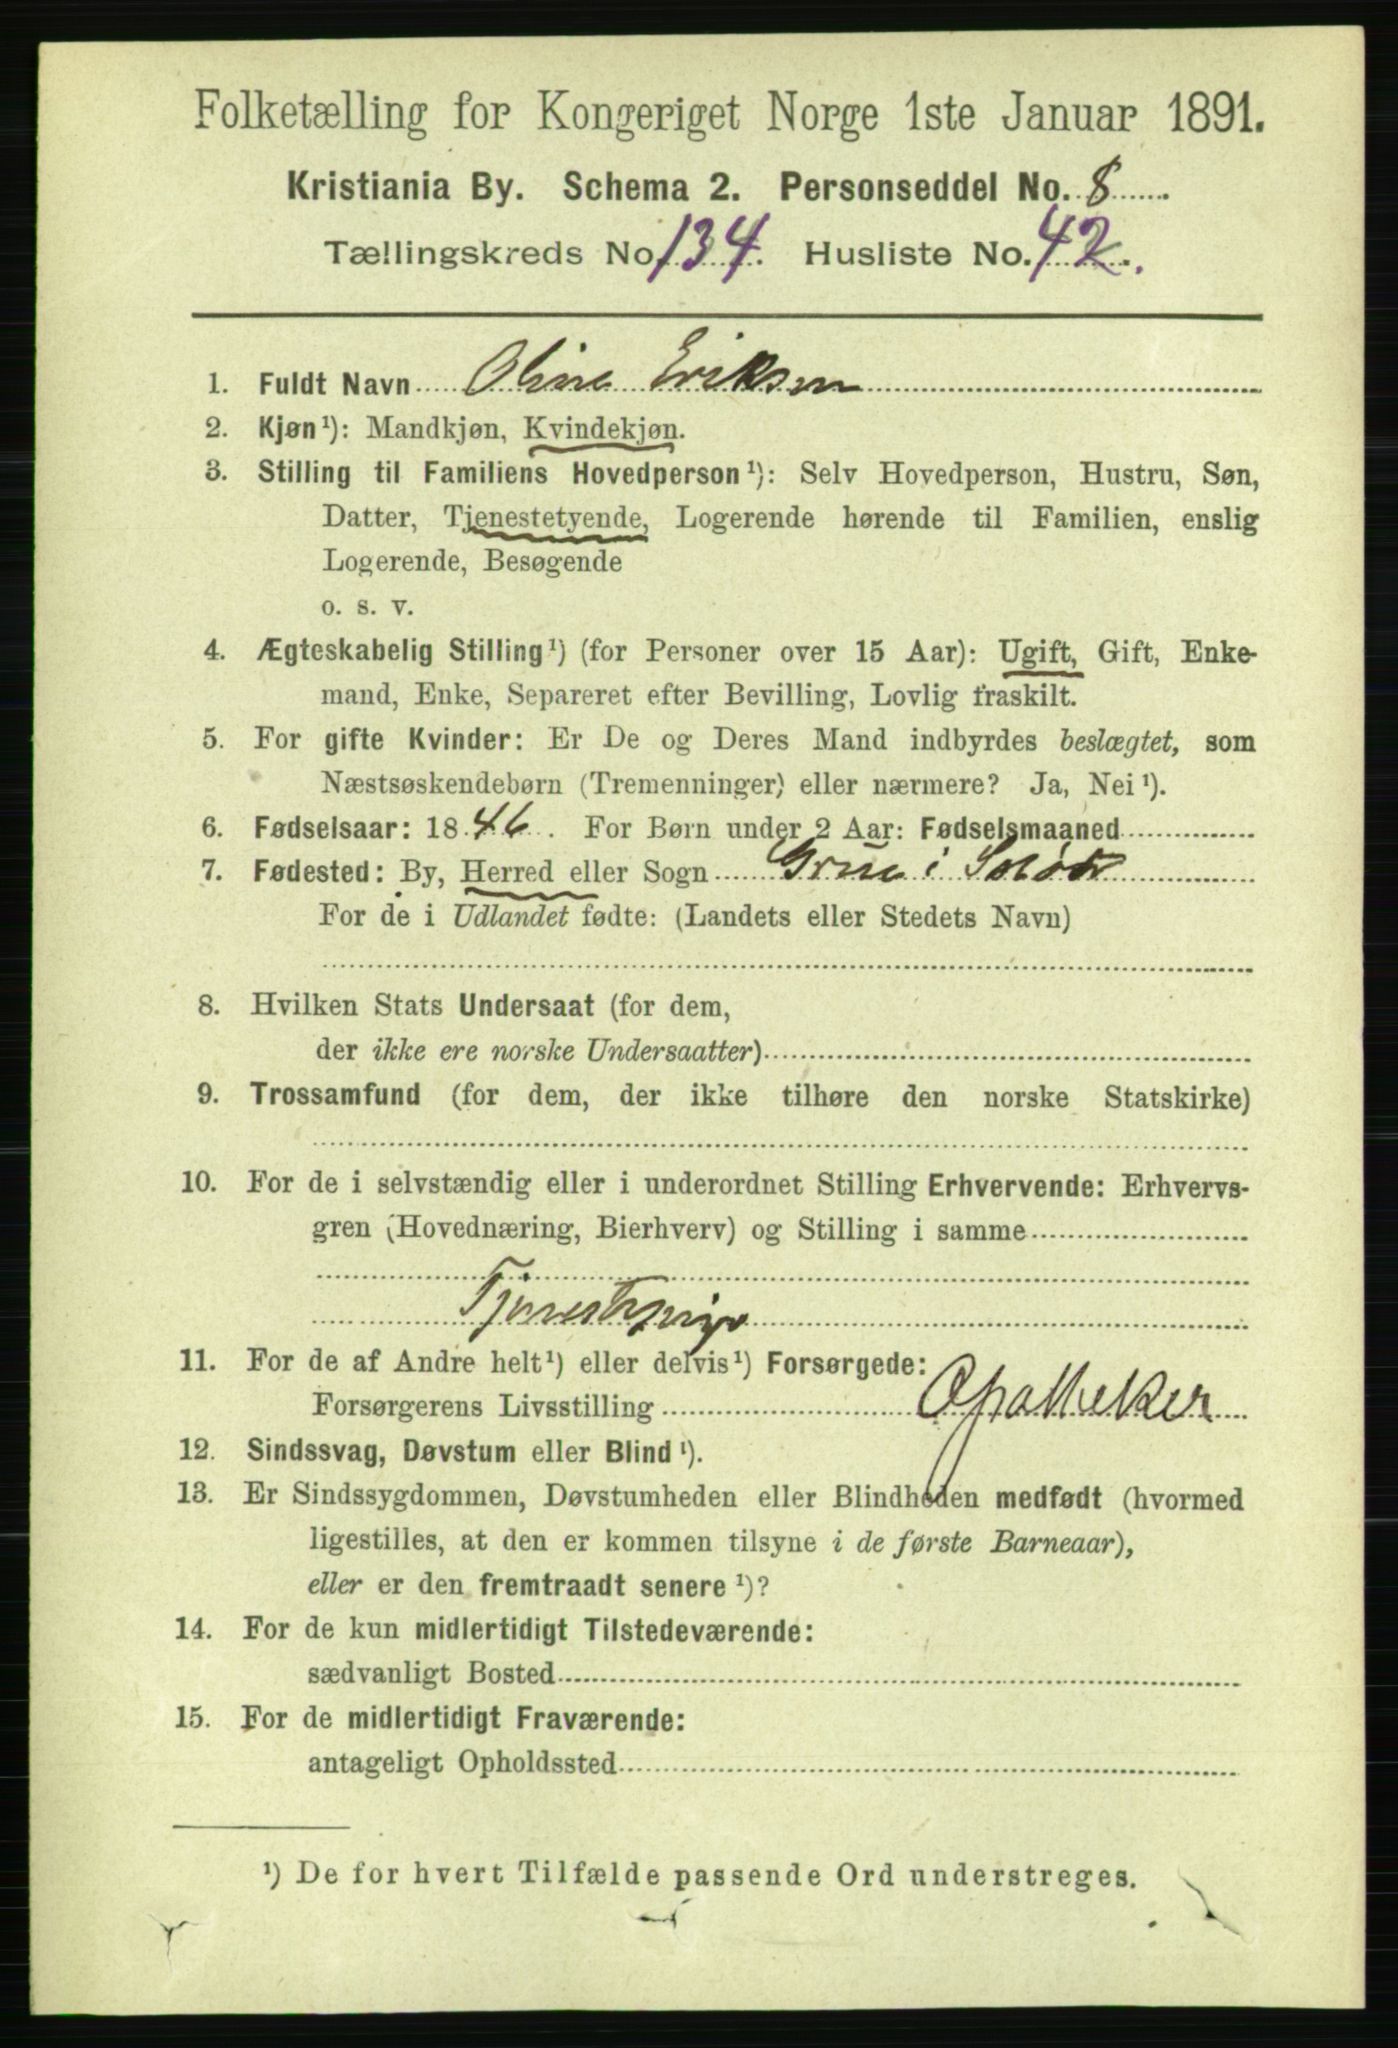 Folketælling for Kongeriget Norge 1ste Januar 1891.
Kristiania By. Schema 2. Personseddel No. 8
Tællingskreds No. 134. Husliste No. 42.
1. Fuldt Navn Oline Eriksen
2. Kjøn ¹): Mandkjøn, Kvindekjøn.
3. Stilling til Familiens Hovedperson ¹): Selv Hovedperson, Hustru, Søn,
Datter, Tjenestetyende, Logerende hørende til Familien, enslig
Logerende, Besøgende
o. s. v.
4. Ægteskabelig Stilling ¹) (for Personer over 15 Aar): Ugift, Gift, Enke-
mand, Enke, Separeret efter Bevilling, Lovlig fraskilt.
5. For gifte Kvinder: Er De og Deres Mand indbyrdes beslægtet, som
Næstsøskendebørn (Tremenninger) eller nærmere? Ja, Nei ¹).
6. Fødselsaar: 1846. For Børn under 2 Aar: Fødselsmaaned
7. Fødested: By, Herred eller Sogn Grue i Solør
For de i Udlandet fødte: (Landets eller Stedets Navn)
8. Hvilken Stats Undersaat (for dem,
der ikke ere norske Undersaatter)
9. Trossamfund (for dem, der ikke tilhøre den norske Statskirke)
10. For de i selvstændig eller i underordnet Stilling Erhvervende: Erhvervs-
gren (Hovednæring, Bierhverv) og Stilling i samme
Tjenestepige
11. For de af Andre helt ¹) eller delvis ¹) Forsørgede:
Forsørgerens Livsstilling Apotheker
12. Sindssvag, Døvstum eller Blind ¹).
13. Er Sindssygdommen, Døvstumheden eller Blindheden medfødt (hvormed
ligestilles, at den er kommen tilsyne i de første Barneaar),
eller er den fremtraadt senere ¹)?
14. For de kun midlertidigt Tilstedeværende:
sædvanligt Bosted
15. For de midlertidigt Fraværende:
antageligt Opholdssted
¹) De for hvert Tilfælde passende Ord understreges.